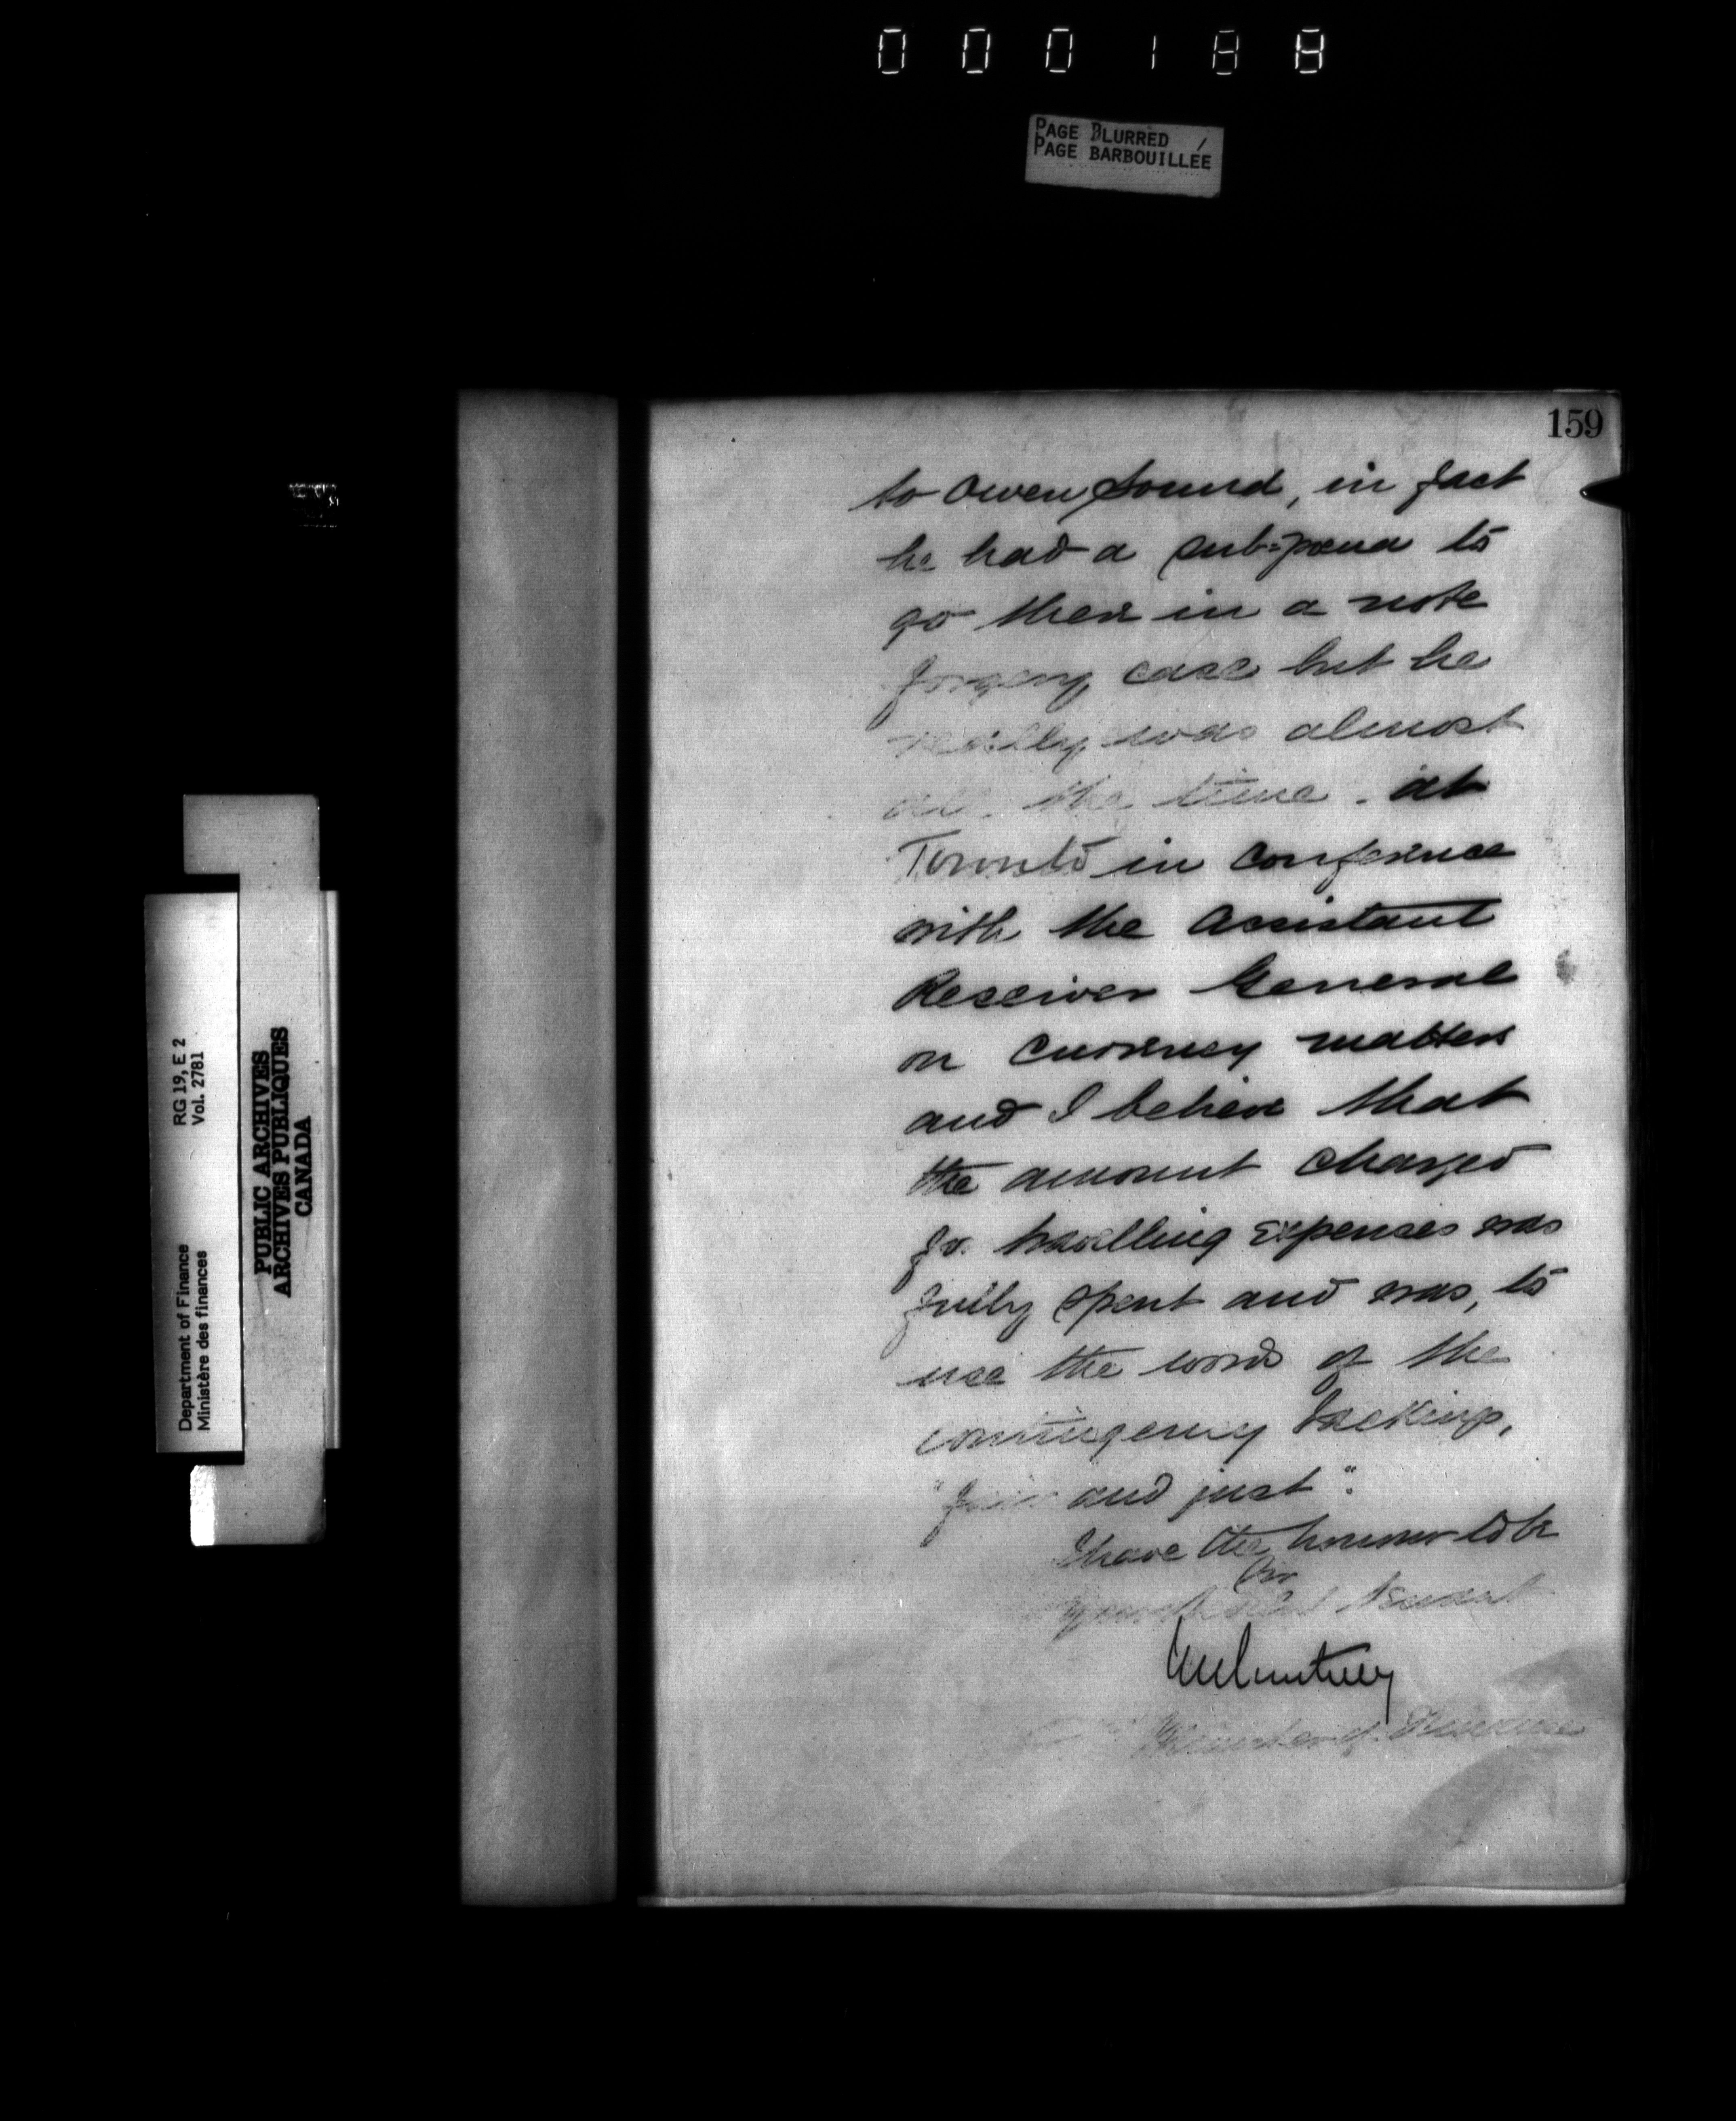 000188
PAGE BLURRED
PAGE BARBOUILLÉE
159
to Owen Sound, in fact
he had a sub=pœna to
go there in a note
forgery case but he
really was almost
all the time at
Toronto in conference
with the Assistant
Receiver General
on currency matters
and I believe that
the amount charged
for travelling expenses was
fully spent and was, to
use the words of the
contingency
"fair and just".
I have the honour to be
Sir
Your Obdt Servant
JM Courtney
Minister of Finance
RG 19, E 2
Vol. 2781
Department of Finance
Ministère des finances
PUBLIC ARCHIVES
ARCHIVES PUBLIQUES
CANADA